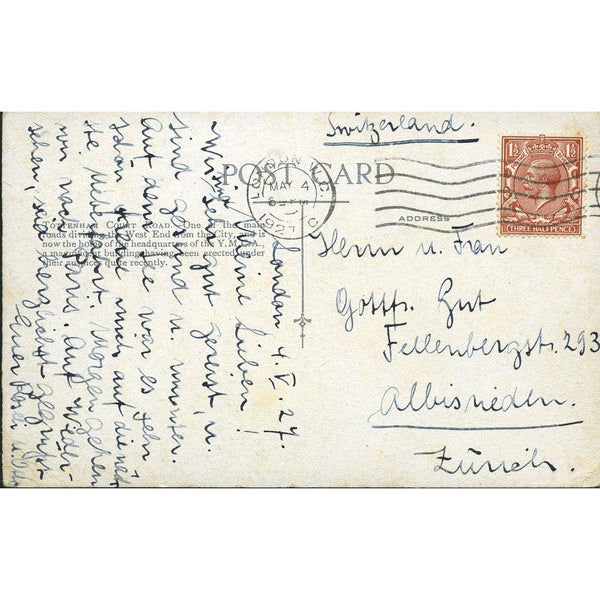 Switzerland.
POST CARD
LONDON W.C.
MAY 4
1927
C
1½ 1½
THREE HALFPENCE
ADDRESS
Herrn u. Frau
Gottfr. Gut
Fellenbergstr. 293
Albisrieden.
Zürich.
TOTTENHAM COURT ROAD. One of the main
roads dividing the West End from the City, and is
now the home of the headquarters of the Y.M.C.A.,
a magnificent building having been erected under
their auspices quite recently.
London 4. V. 27.
Meine Lieben!
Wir sind sehr gut gereist, u.
sind gesund u. munter.
Auf dem See war es sehr
schön. Freue mich auf die näch-
ste Ueberfahrt. Morgen gehen
wir nach Paris. Auf Wieder-
sehen, seid herzlichst gegrüsst
Euer